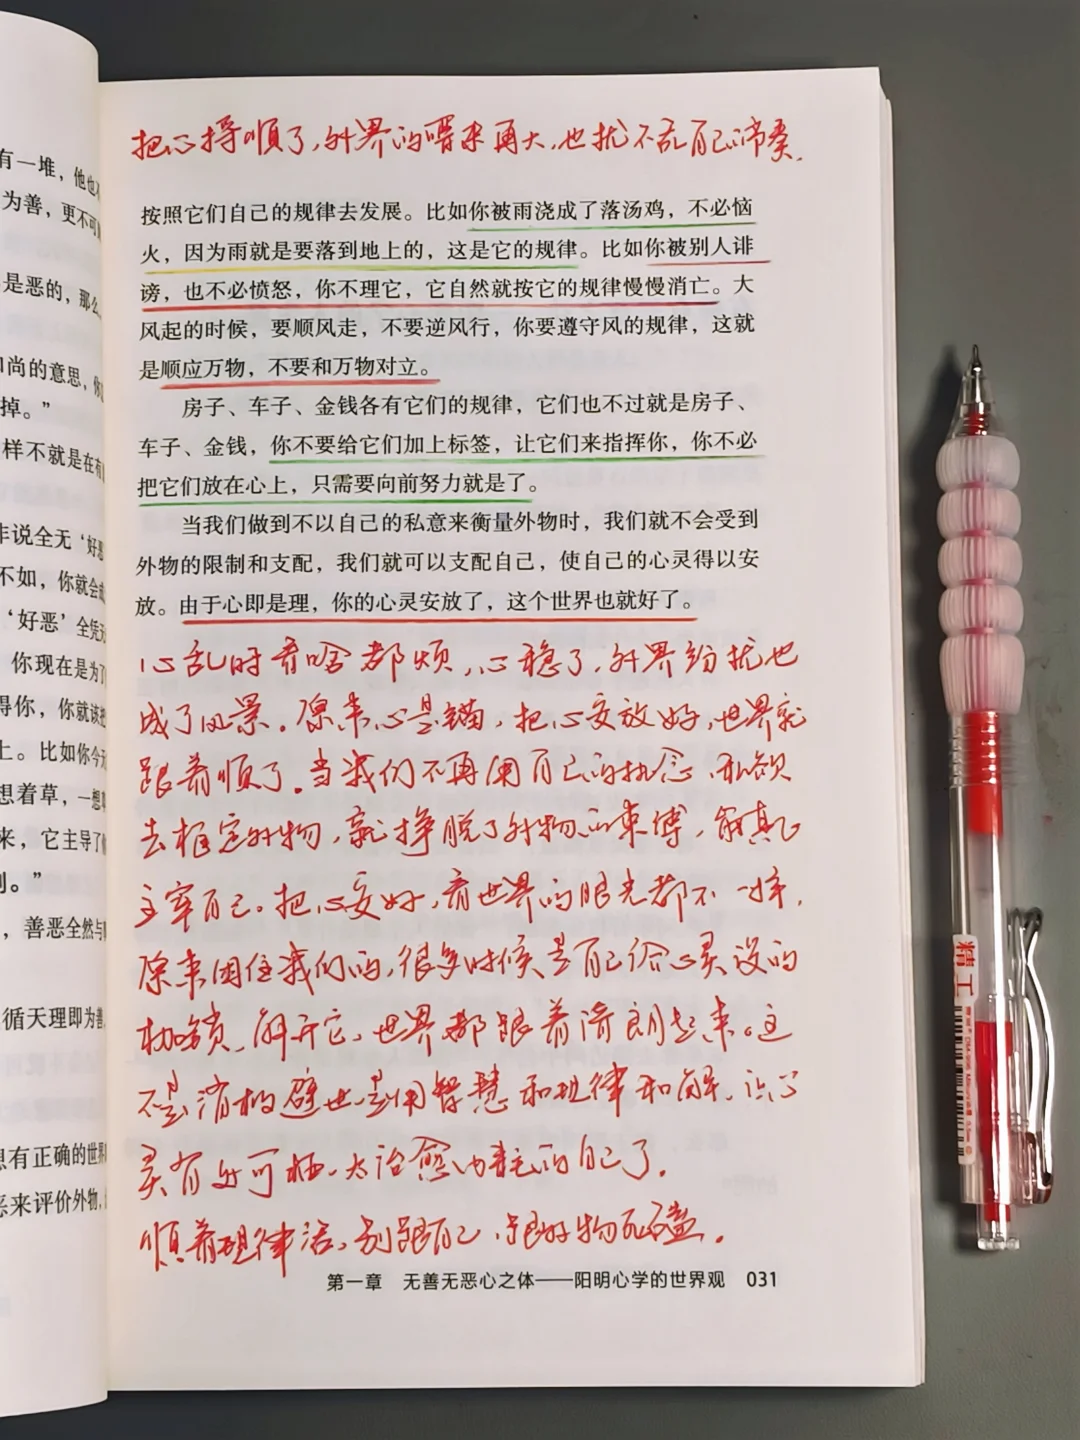 把心捋顺了,外界的噪来再大,也扰不乱自己的节奏.
按照它们自己的规律去发展。比如你被雨浇成了落汤鸡，不必恼
火，因为雨就是要落到地上的，这是它的规律。比如你被别人诽
谤，也不必愤怒，你不理它，它自然就按它的规律慢慢消亡。大
风起的时候，要顺风走，不要逆风行，你要遵守风的规律，这就
是顺应万物，不要和万物对立。
房子、车子、金钱各有它们的规律，它们也不过就是房子、
车子、金钱，你不要给它们加上标签，让它们来指挥你，你不必
把它们放在心上，只需要向前努力就是了。
当我们做到不以自己的私意来衡量外物时，我们就不会受到
外物的限制和支配，我们就可以支配自己，使自己的心灵得以安
放。由于心即是理，你的心灵安放了，这个世界也就好了。
心乱时看啥都烦,心稳了,外界纷扰也
成了风景。原来心是锚,把心安放好,世界就
跟着顺了。当我们不再用自己的执念、私欲
去框定外物,就挣脱了外物的束缚,能真正
主宰自己。把心安好,看世界的眼光都不一样,
原来困住我们的,很多时候是自己给心灵设的
枷锁、解开它,世界都跟着晴朗起来。这
不是消极避世,是用智慧和规律和解,让心
灵有处可栖、太治愈内耗的自己了.
顺着规律活,别跟自己、跟外物死磕.
第一章 无善无恶心之体——阳明心学的世界观 031
有一堆，他也
为善，更不可
是恶的，那么
和尚的意思，你
掉。”
样不就是在有
非说全无‘好恶
不如，你就会
‘好恶’全凭
你现在是为了
得你，你就该把
上。比如你今天
想着草，一想
来，它主导了
，善恶全然与
循天理即为善
思有正确的世界
恶来评价外物，
精工